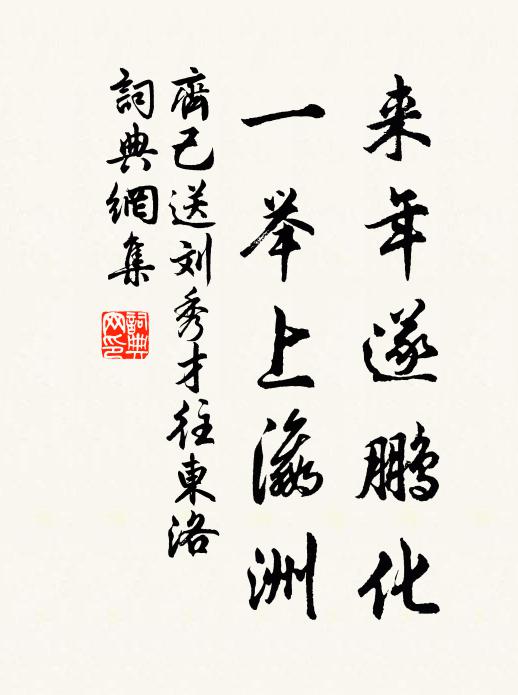 来年遂鹏化
一举上瀛洲
齊己送刘秀才往東洛
詞典網集
詞典网印